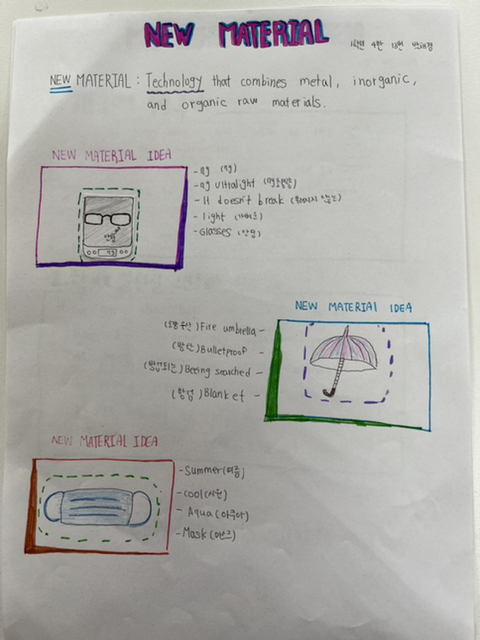 NEW MATERIAL
1학년 4반 13번
NEW MATERIAL : Technology that combines metal, inorganic,
and organic raw materials.
NEW MATERIAL IDEA
- ng (ng)
- ng ultralight (ng초경량)
- It doesn't break
- light (가벼운)
- Glasses (안경)
안경
NEW MATERIAL IDEA
Fire umbrella -
(방탄) Bulletproof -
Beeing searched -
Blanket -
NEW MATERIAL IDEA
- Summer (여름)
- cool (시원)
- Aqua (아쿠아)
- Mask (마스크)